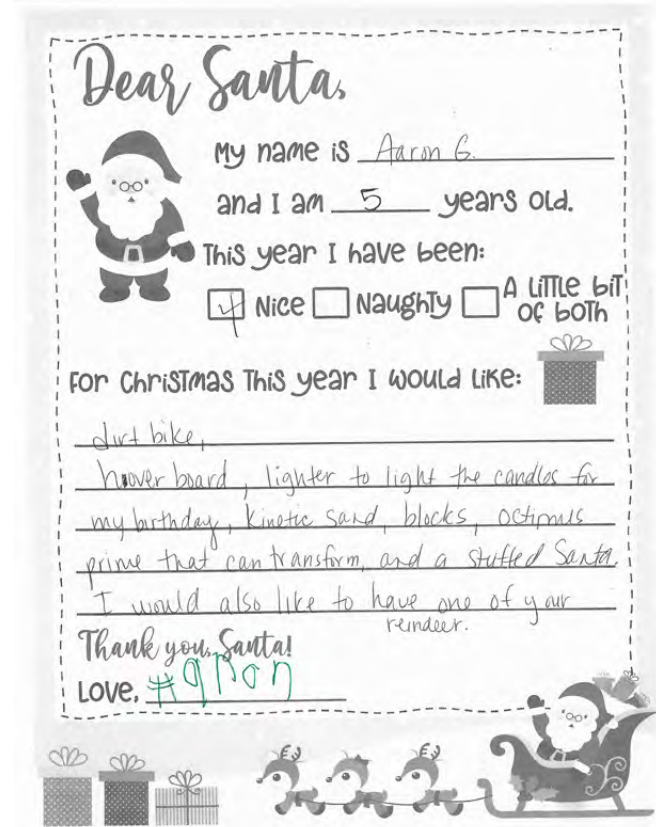 Dear Santa,
My name is Aaron G.
and I am 5 years old.
This year I have been:
Nice Naughty A little bit of both
For Christmas this year I would like:
dirt bike,
hoover board, lighter to light the candles for
my birthday, Kinetic sand, blocks, octipmus
prime that can transform, and a stuffed Santa.
I would also like to have one of your
reindeer.
Thank you, Santa!
Love, Aaron